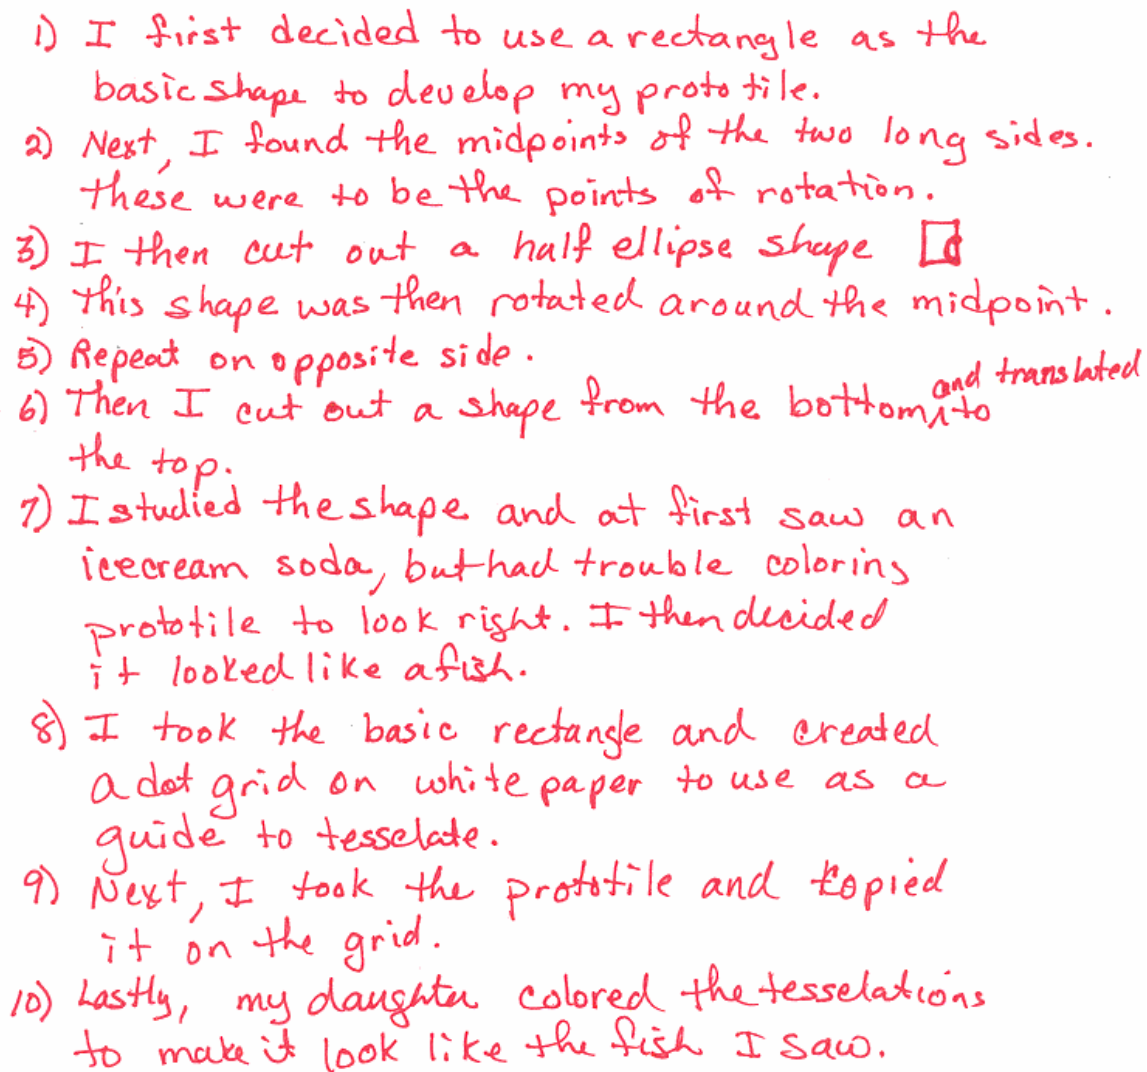 1) I first decided to use a rectangle as the
basic shape to develop my proto tile.
2) Next, I found the midpoints of the two long sides.
these were to be the points of rotation.
3) I then cut out a half ellipse shape
4) This shape was then rotated around the midpoint.
5) Repeat on opposite side.
6) Then I cut out a shape from the bottom and translated to
the top.
7) I studied the shape and at first saw an
icecream soda, but had trouble coloring
prototile to look right. I then decided
it looked like a fish.
8) I took the basic rectangle and created
a dot grid on white paper to use as a
guide to tesselate.
9) Next, I took the prototile and copied
it on the grid.
10) Lastly, my daughter colored the tesselations
to make it look like the fish I saw.